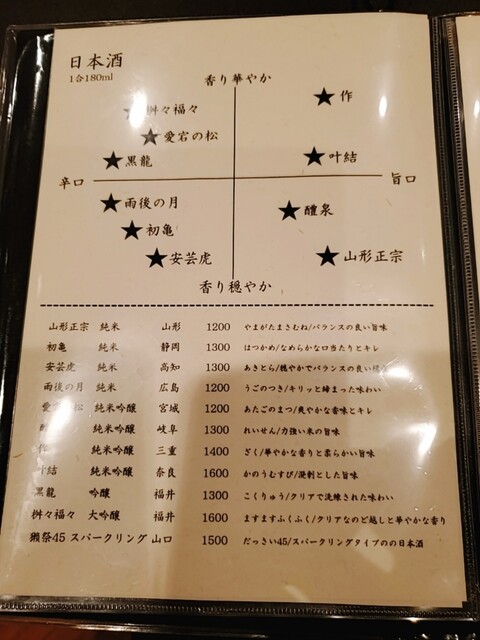 日本酒
1合180ml
香り華やか
★作
★桝々福々
★愛宕の松
★黒龍
★叶結
辛口
旨口
★雨後の月
★醴泉
★初亀
★安芸虎
★山形正宗
香り穏やか
山形正宗 純米 山形 1200 やまがたまさむね/バランスの良い旨味
初亀 純米 静岡 1300 はつかめ/なめらかな口当たりとキレ
安芸虎 純米 高知 1300 あきとら/穏やかでバランスの良い
雨後の月 純米 広島 1200 うごのつき/キリッと締まった味わい
愛 松 純米吟醸 宮城 1200 あたごのまつ/爽やかな香味とキレ
純米吟醸 岐阜 1300 れいせん/力強い米の旨味
作 純米吟醸 三重 1400 ざく/華やかな香りと柔らかい旨味
叶結 純米吟醸 奈良 1600 かのうむすび/溌剌とした旨味
黒龍 吟醸 福井 1300 こくりゅう/クリアで洗練された味わい
桝々福々 大吟醸 福井 1600 ますますふくふく/クリアなのど越しと華やかな香り
獺祭45 スパークリング 山口 1500 だっさい45/スパークリングタイプのの日本酒